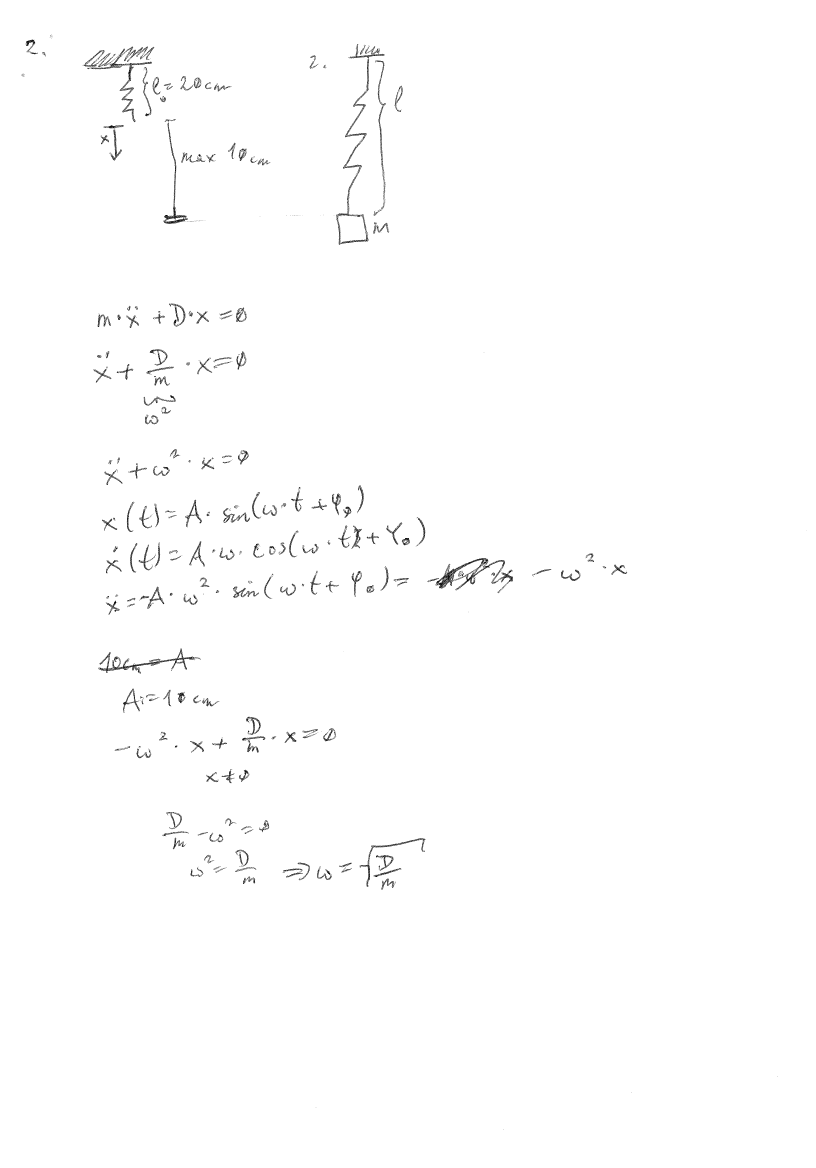 2.
l₀ = 20cm
x
max 10cm
2.
l
m
m·ẍ + D·x = 0
ẍ + D/m · x = 0
ω²
ẍ + ω² · x = 0
x(t) = A · sin(ω·t + φ₀)
ẋ(t) = A·ω·cos(ω·t + φ₀)
ẍ = -A·ω²·sin(ω·t + φ₀) = -ω²·x
10cm = A
A := 10cm
-ω² · x + D/m · x = 0
x ≠ 0
D/m - ω² = 0
ω² = D/m ⇒ ω = √(D/m)